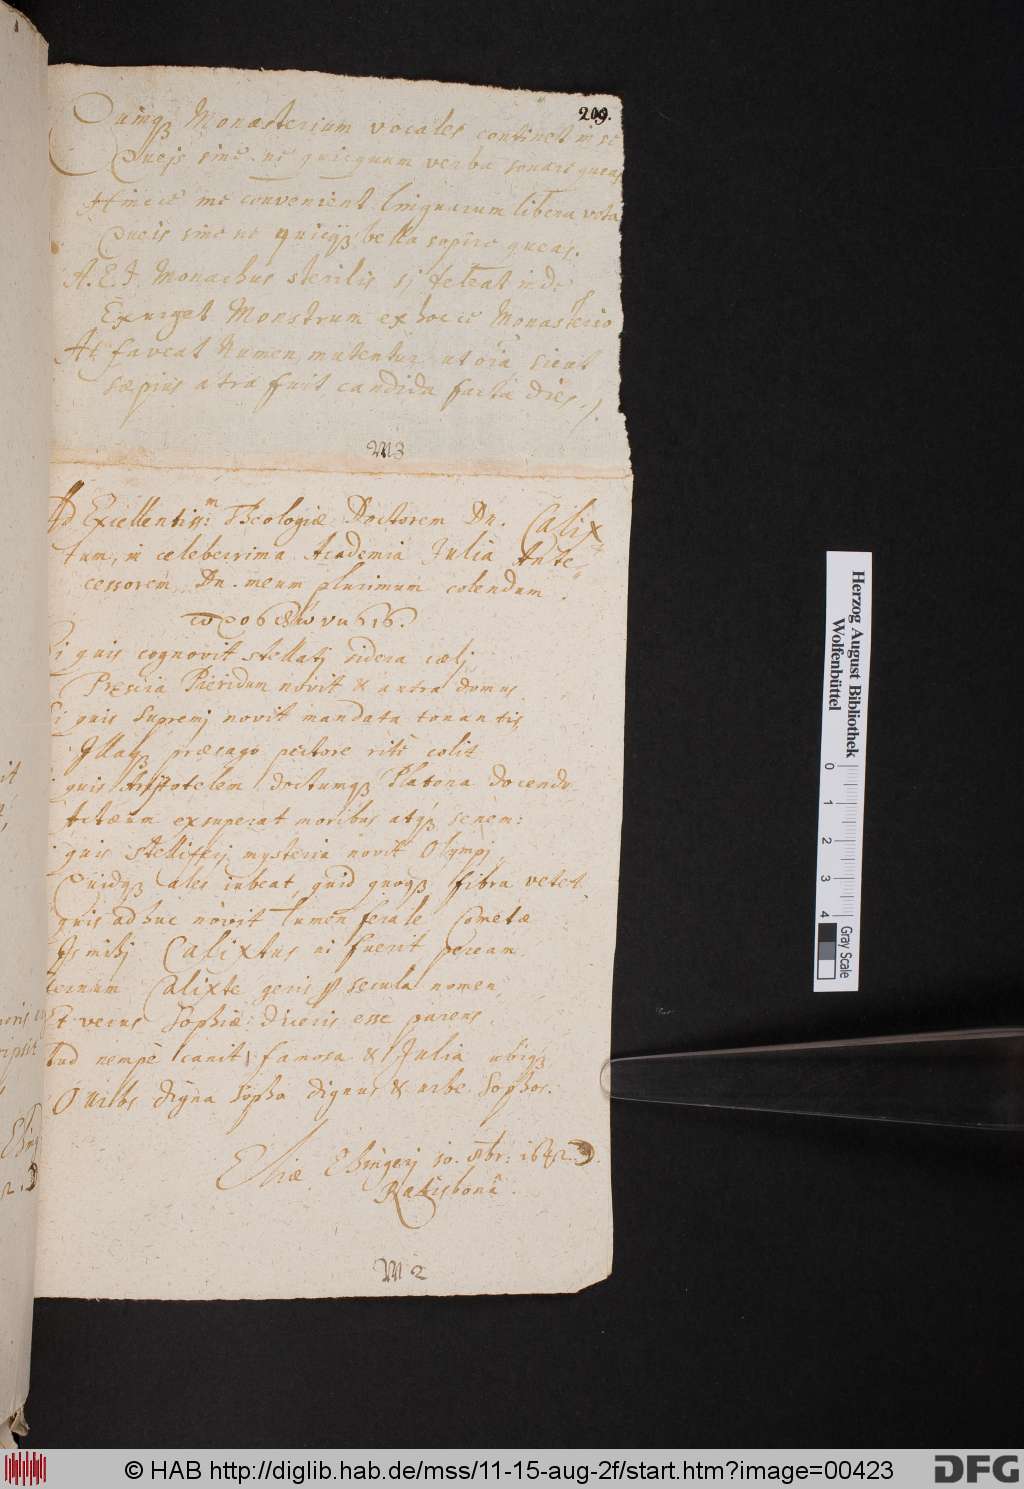 209.
Quinqꝫ Monasterium vocales continet in se
Queis sine nec quicquam verba sonare queas
Hincce me convenient linguarum libera vota
Queis sine ne quicqꝫ bella sopire queas.
A. E. I. Monachus sterilis si feteat inde
Exurget Monstrum ex hocce Monasterio
At faveat Numen, mutentur ut oia sicut
sæpius atra fuit candida facta dies.
M3
Ad Excellentissm: Theologiæ Doctorem Dn. Calix
tum, in celeberrima Academia Julia Ante
cessorem, Dn. meum plurimum colendum.
Si quis cognovit stellati sidera cæli,
Præscia Pieridum novit & antra domus
Si quis supremj novit mandata tonantis,
Illaqꝫ præsago pectore ritè colit
quis Aristotelem doctumqꝫ Platona docendo
Actæum exsuperat moribus atqꝫ senem:
quis stelliferj mysteria novit Olympj,
Quidqꝫ ales iubeat, quid quoqꝫ fibra vetet.
quis adhuc novit lumen ferale Cometæ
Is mihj Calixtus ni fuerit peream.
ternum Calixte geris ꝑ secula nomen,
Et verus Sophiæ diceris esse parens.
tud nempè canit famosa & Julia ubiqꝫ
O Urbs digna Sopho dignus & urbe Sophos.
Eliæ Ehingerj 10. 1642.
Ratisbonâ.
M 2
Herzog August Bibliothek
Wolfenbüttel
0 1 2 3 4
Gray Scale
© HAB http://diglib.hab.de/mss/11-15-aug-2f/start.htm?image=00423
DFG